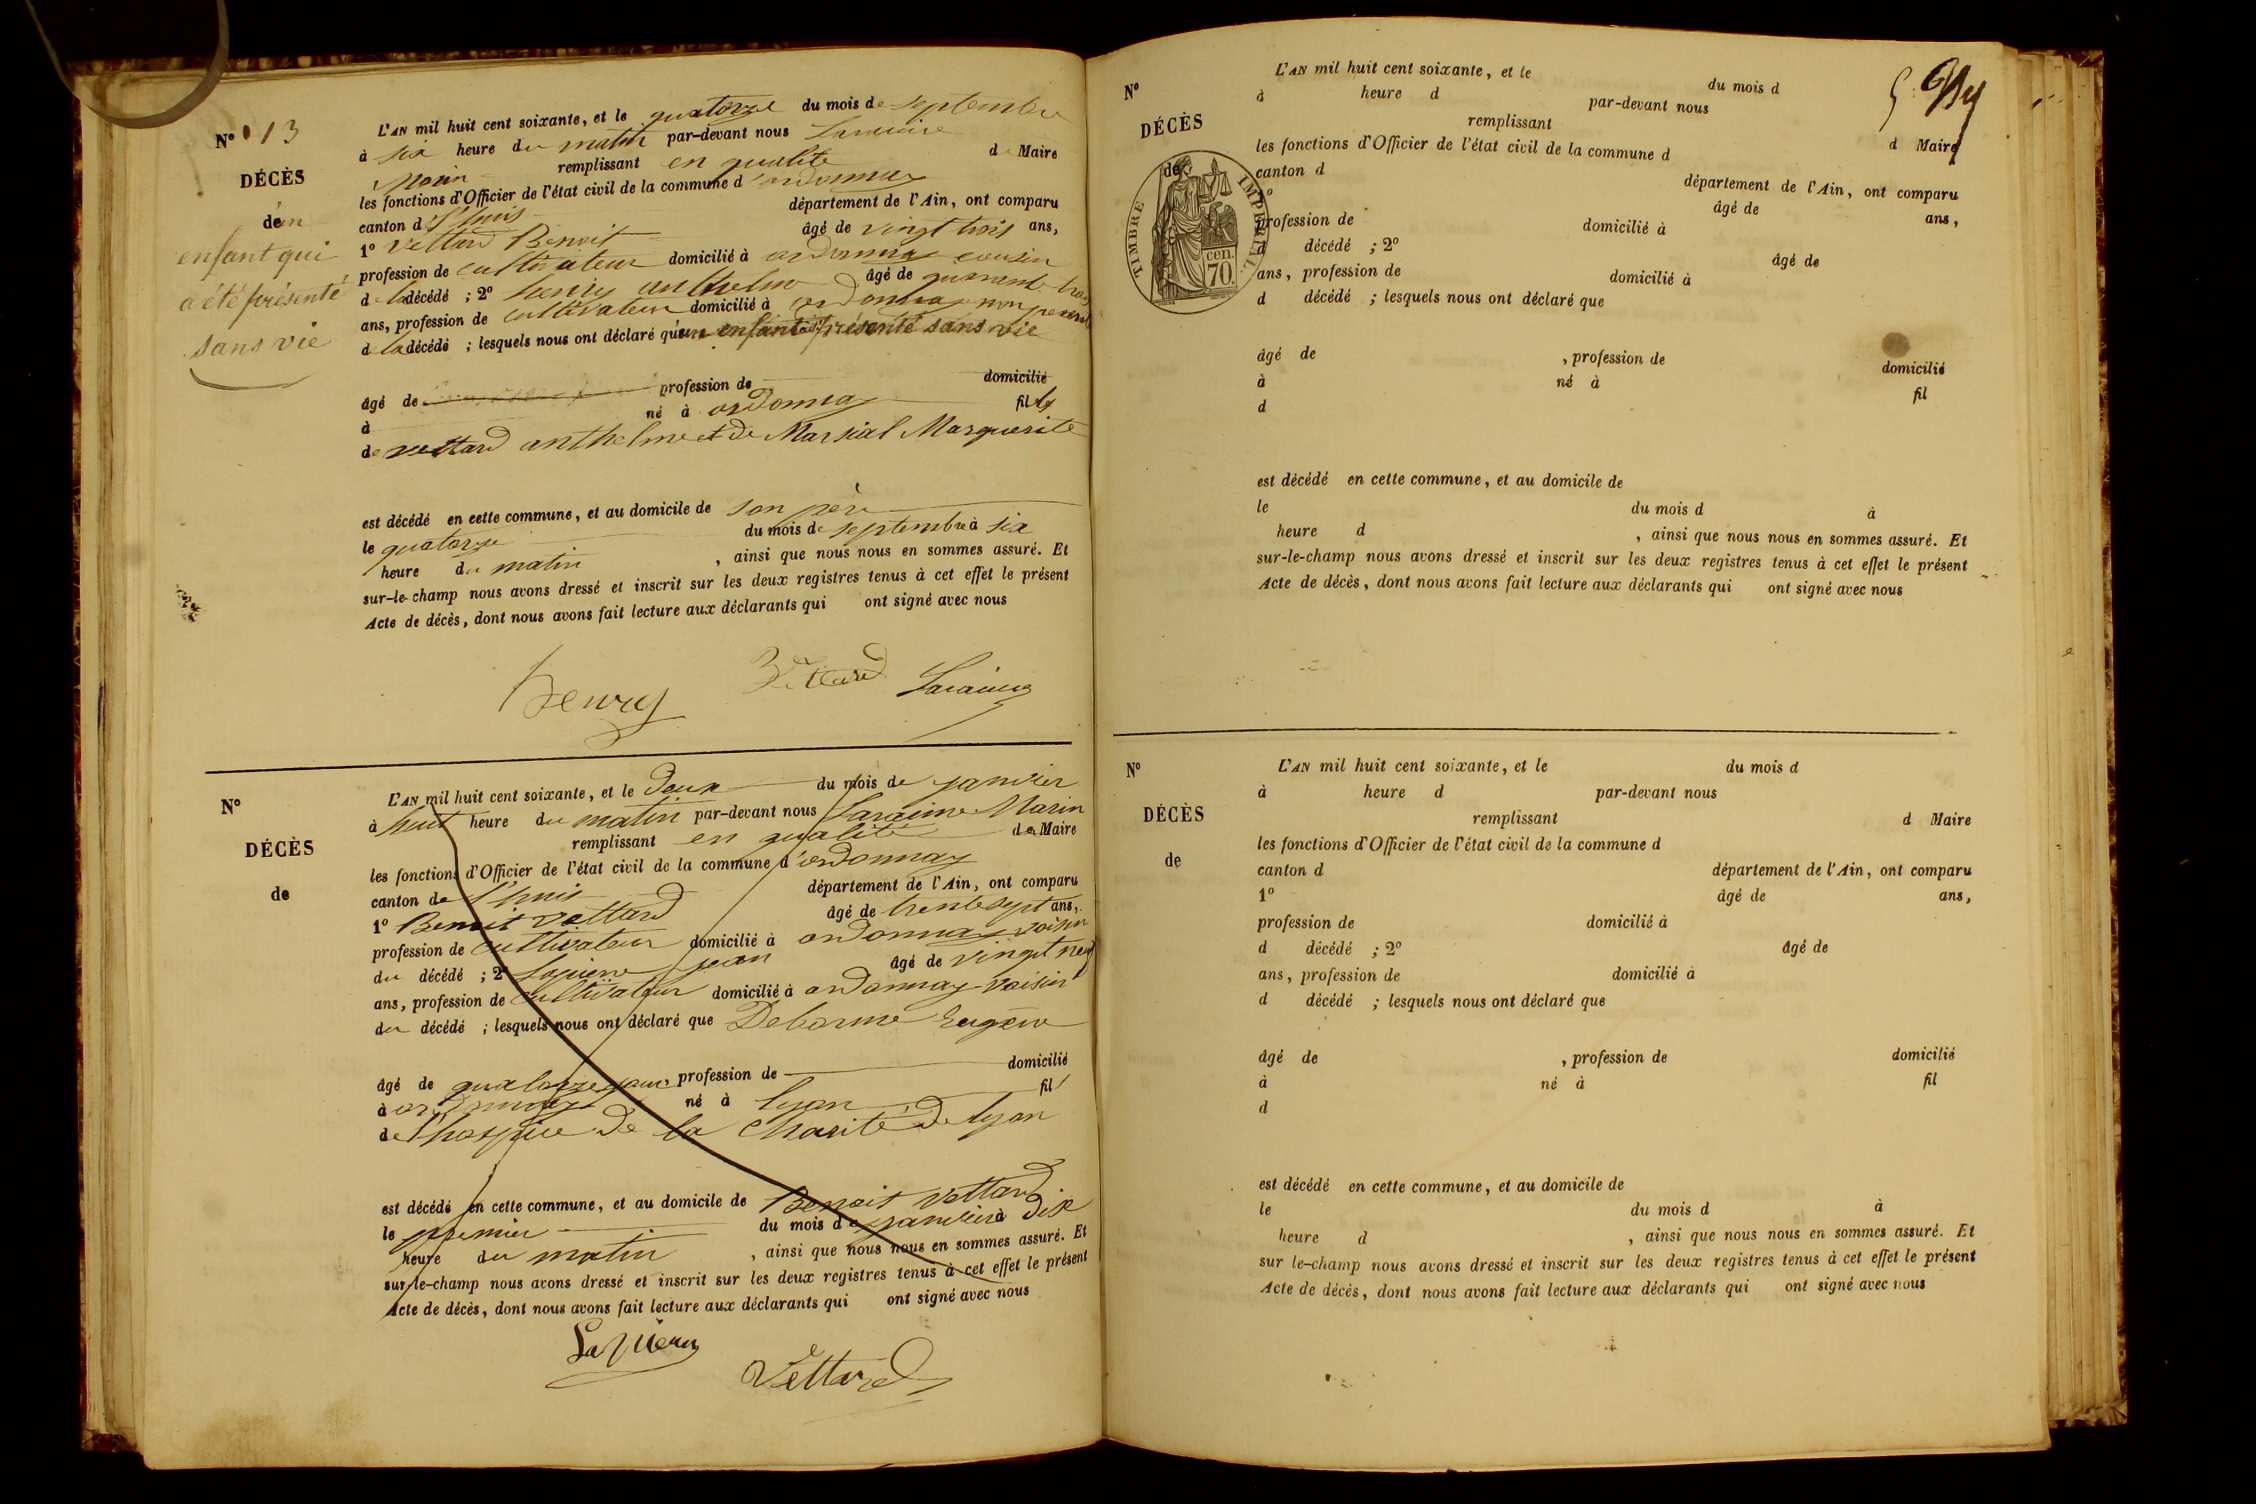 N° 13
DÉCÈS
d'un
enfant qui
a été présenté
sans vie
L'AN mil huit cent soixante, et le quatorze du mois de septembre
à six heure du matin par-devant nous Laraime
Marin remplissant en qualité de Maire
les fonctions d'Officier de l'état civil de la commune d'ordonnay
canton de l'huis département de l'Ain, ont comparu
1° Vettard Benoit âgé de vingt trois ans,
profession de cultivateur domicilié à ordonnay cousin
de la décédé ; 2° henry anthelme âgé de quarante trois
ans, profession de cultivateur domicilié à ordonnay non parent
de la décédé ; lesquels nous ont déclaré qu'un enfant présenté sans vie
âgé de profession de domicilié
à né à ordonnay fil
de vettard anthelme et de Marsial Marguerite
est décédé en cette commune, et au domicile de son père
le quatorze du mois de septembre à six
heure du matin , ainsi que nous nous en sommes assuré. Et
sur-le-champ nous avons dressé et inscrit sur les deux registres tenus à cet effet le présent
Acte de décès, dont nous avons fait lecture aux déclarants qui ont signé avec nous
henry Vettard Laraime
N°
DÉCÈS
de
L'AN mil huit cent soixante, et le deux du mois de janvier
à huit heure du matin par-devant nous Laraime Marin
remplissant en qualité de Maire
les fonctions d'Officier de l'état civil de la commune d'ordonnay
canton de l'huis département de l'Ain, ont comparu
1° Benoit Vettard âgé de trente sept ans,
profession de cultivateur domicilié à ordonnay voisin
du décédé ; 2° Laquieru jean âgé de vingt neuf
ans, profession de cultivateur domicilié à ordonnay voisin
du décédé ; lesquels nous ont déclaré que Deborme Eugène
âgé de quatorze jours profession de domicilié
à ordonnay né à lyon fil
de l'hospice de la charité de lyon
est décédé en cette commune, et au domicile de Benoit Vettard
le premier du mois de janvier à dix
heure du matin , ainsi que nous nous en sommes assuré. Et
sur-le-champ nous avons dressé et inscrit sur les deux registres tenus à cet effet le présent
Acte de décès, dont nous avons fait lecture aux déclarants qui ont signé avec nous
Vettard
5
N°
DÉCÈS
de
TIMBRE IMPÉRIAL
70 cen.
L'AN mil huit cent soixante, et le du mois d
à heure d par-devant nous
remplissant d Maire
les fonctions d'Officier de l'état civil de la commune d
canton d département de l'Ain, ont comparu
1° âgé de ans,
profession de domicilié à
d décédé ; 2° âgé de
ans, profession de domicilié à
d décédé ; lesquels nous ont déclaré que
âgé de , profession de domicilié
à né à fil
d
est décédé en cette commune, et au domicile de
le du mois d à
heure d , ainsi que nous nous en sommes assuré. Et
sur-le-champ nous avons dressé et inscrit sur les deux registres tenus à cet effet le présent
Acte de décès, dont nous avons fait lecture aux déclarants qui ont signé avec nous
N°
DÉCÈS
de
L'AN mil huit cent soixante, et le du mois d
à heure d par-devant nous
remplissant d Maire
les fonctions d'Officier de l'état civil de la commune d
canton d département de l'Ain, ont comparu
1° âgé de ans,
profession de domicilié à
d décédé ; 2° âgé de
ans, profession de domicilié à
d décédé ; lesquels nous ont déclaré que
âgé de , profession de domicilié
à né à fil
d
est décédé en cette commune, et au domicile de
le du mois d à
heure d , ainsi que nous nous en sommes assuré. Et
sur le-champ nous avons dressé et inscrit sur les deux registres tenus à cet effet le présent
Acte de décès, dont nous avons fait lecture aux déclarants qui ont signé avec nous